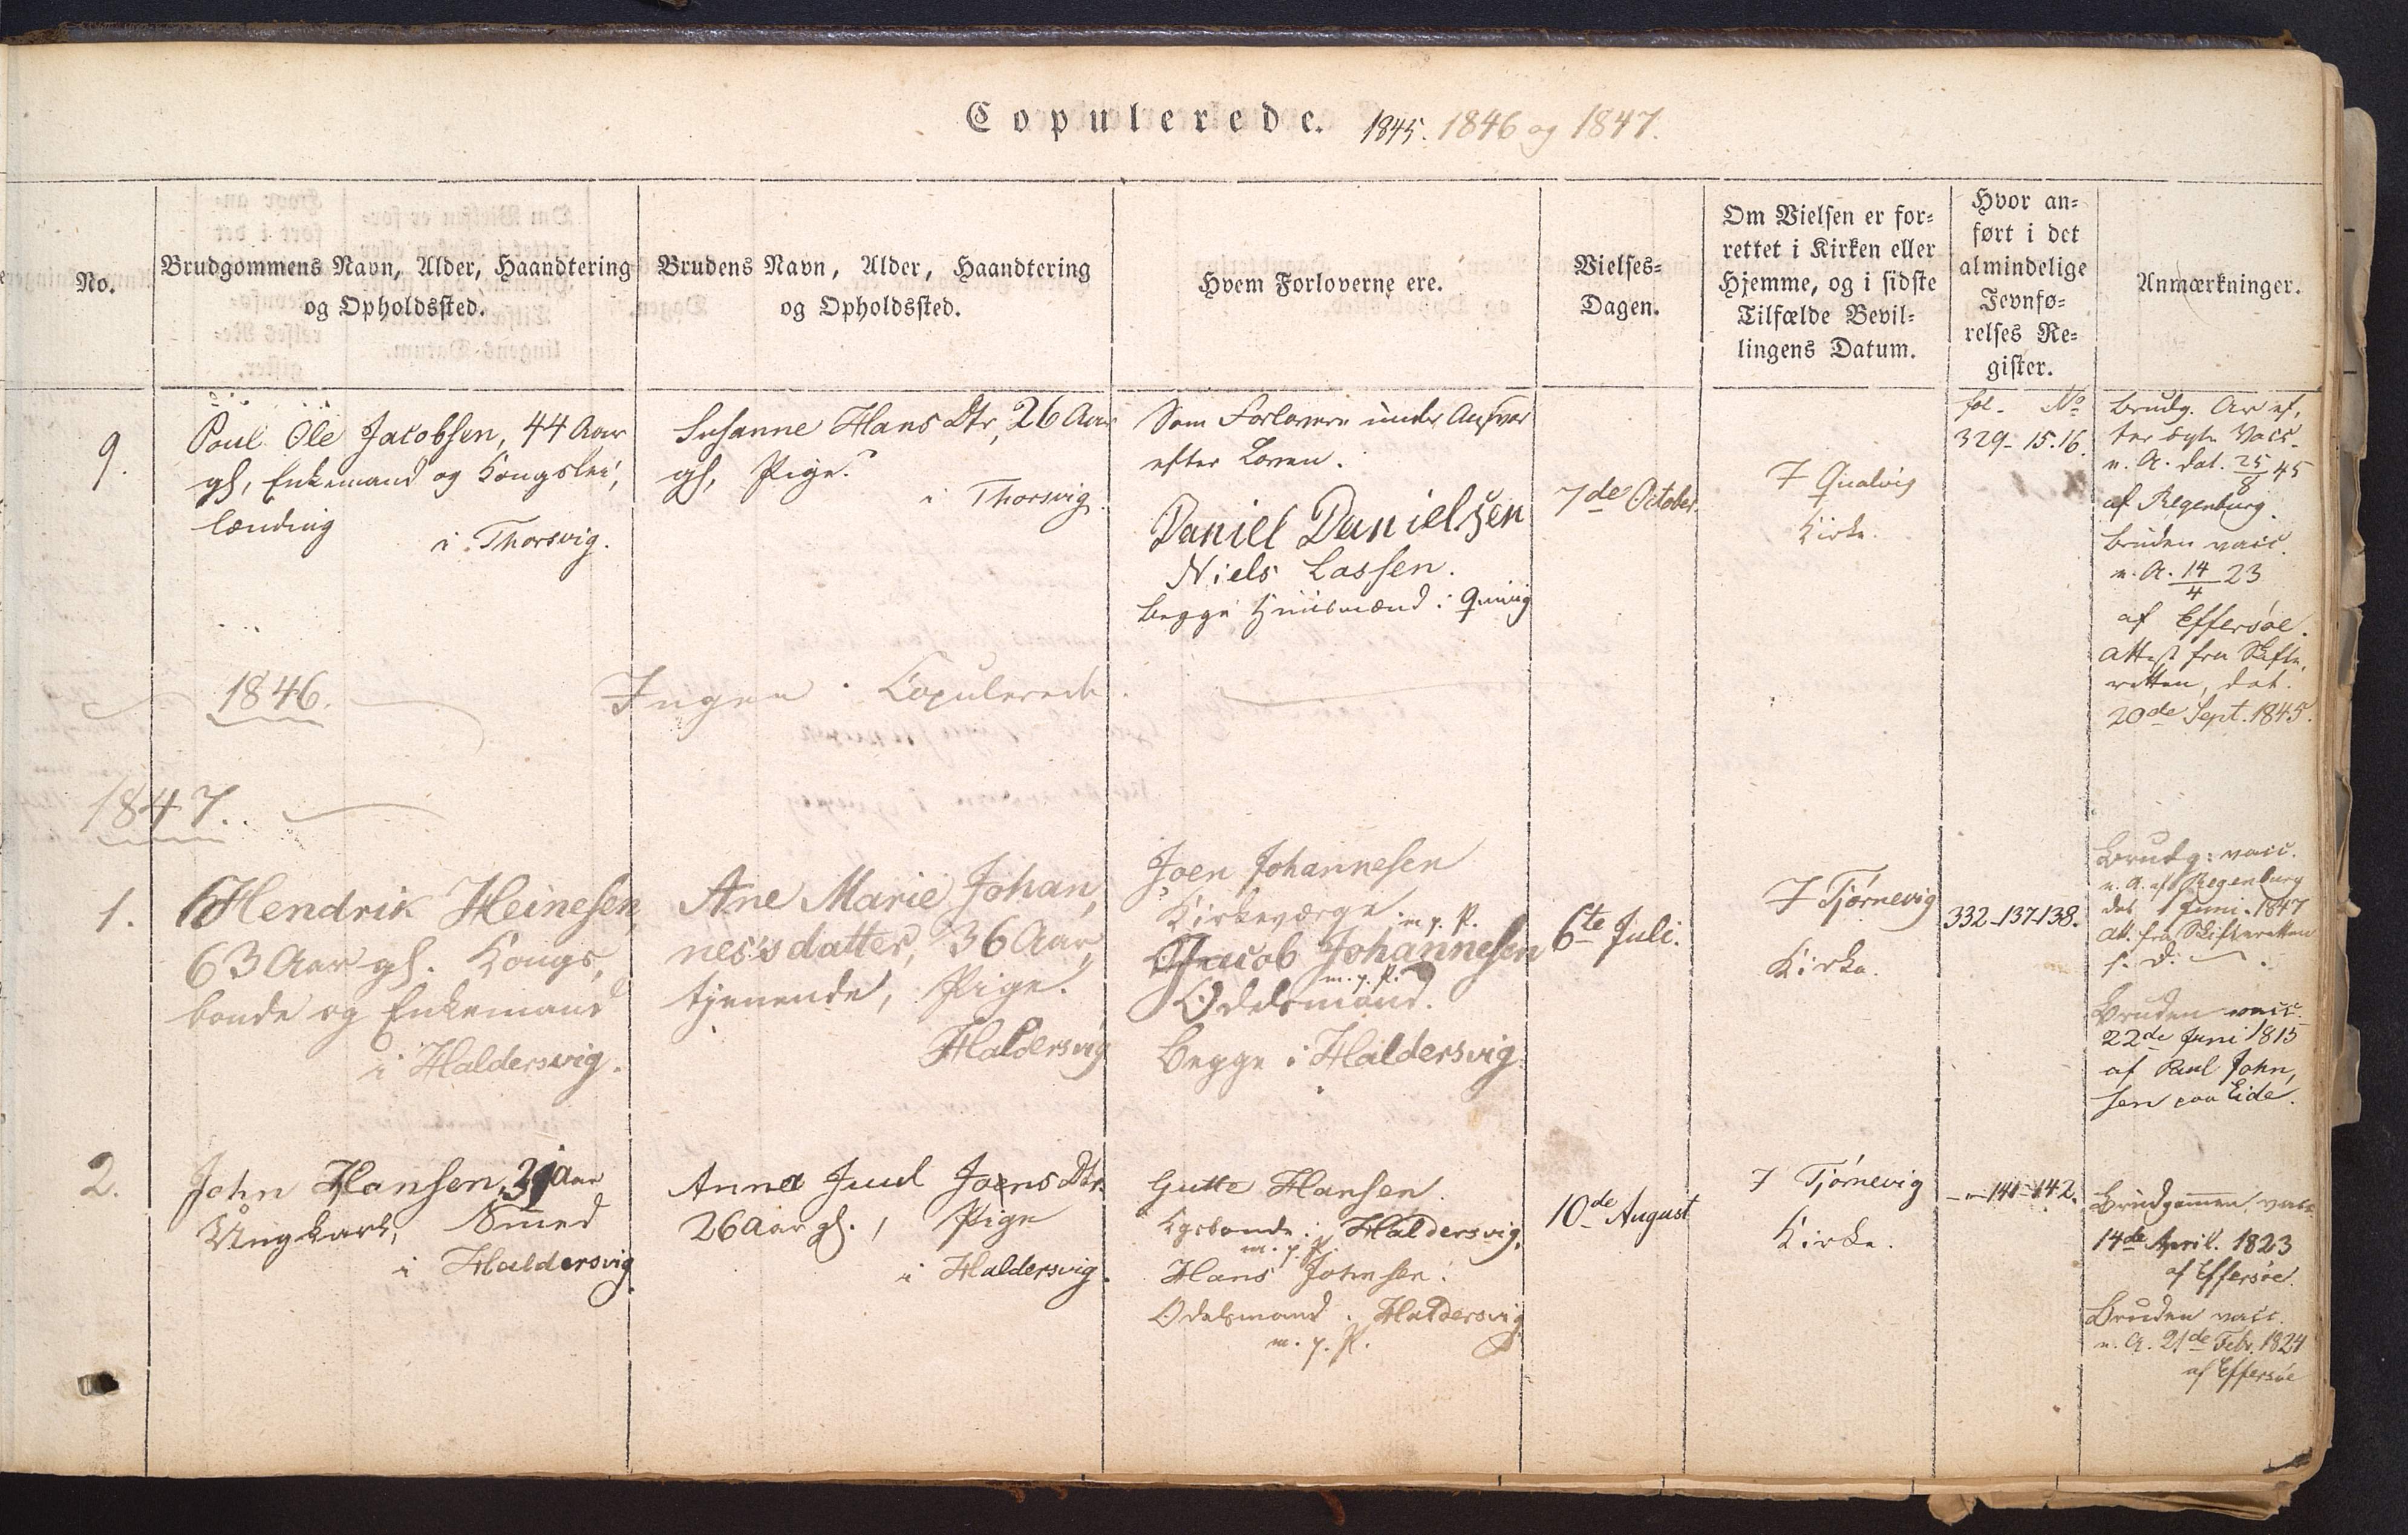 Copulerede. 1845. 1846 og 1847.
No.
Brudgommens Navn, Alder, Haandtering
og Opholdssted.
Brudens Navn, Alder, Haandtering
og Opholdssted.
Hvem Forloverne ere.
Vielses-
Dagen.
Om Vielsen er for-
rettet i Kirken eller
Hjemme, og i sidste
Tilfælde Bevil-
lingens Datum.
Hvor an-
ført i det
almindelige
Jevnfø-
relses Re-
gister.
Anmærkninger.
9.
Poul Ole Jacobsen, 44 Aar
gl, Enkemand og Kongslei,
lænding
i Thorsvig.
Susanne Hans Dtr, 26 Aar
gl, Pige.
i Thorsvig.
Som Forlovere under Ansvar
efter Loven.
Daniel Danielsen
Niels Lassen.
begge Huusmænd i Qvivig
7de October.
I Qualvig
Kirke.
fol. No
329- 15.16.
Brudg. Ar ef,
ter Vacc.
n. A. dat. 25/8 45
af Regenburg.
Bruden vacc.
n. A. 14/4 23
af Effersøe.
Attest fra Skifte,
retten, dat.
20de Sept. 1845.
1846.
Ingen Copulerede.
1847.
1.
Hendrik Heinesen,
63 Aar gl. Kongs,
bonde og Enkemand
i Haldersvig.
Ane Marie Johan,
nes's datter, 36 Aar,
tjenende, Pige.
Haldersvig
Joen Johannesen
Kirkeværge m. p. P.
Jacob Johannesen
m. p. P.
Odelsmand.
Begge i Haldersvig.
6te Juli.
I Tjørnevig
Kirke.
332-137-138.
Brudg: vacc.
n. A. af Regenburg
dat 1 Juni. 1847
Att. fra Skifteretten
s. D.
Bruden vacc.
22de Juni 1815
af Paul John,
sen paa Eide.
2.
John Hansen, 31 Aar
Ungkarl, Smed
i Haldersvig.
Anna Juul Joens Dtr.
26 Aar gl., Pige
i Haldersvig.
Gutte Hansen.
Kgsbonde i Haldersvig.
m. p. P.
Hans Johnsen.
Odelsmand. Haldersvig.
m. p. P.
10de August
I Tjørnevig
Kirke.
-"-141-142.
Brudgommen vacc.
14de April. 1823
af Effersøe.
Bruden vacc.
n. A. 21de Febr. 1824
af Effersøe